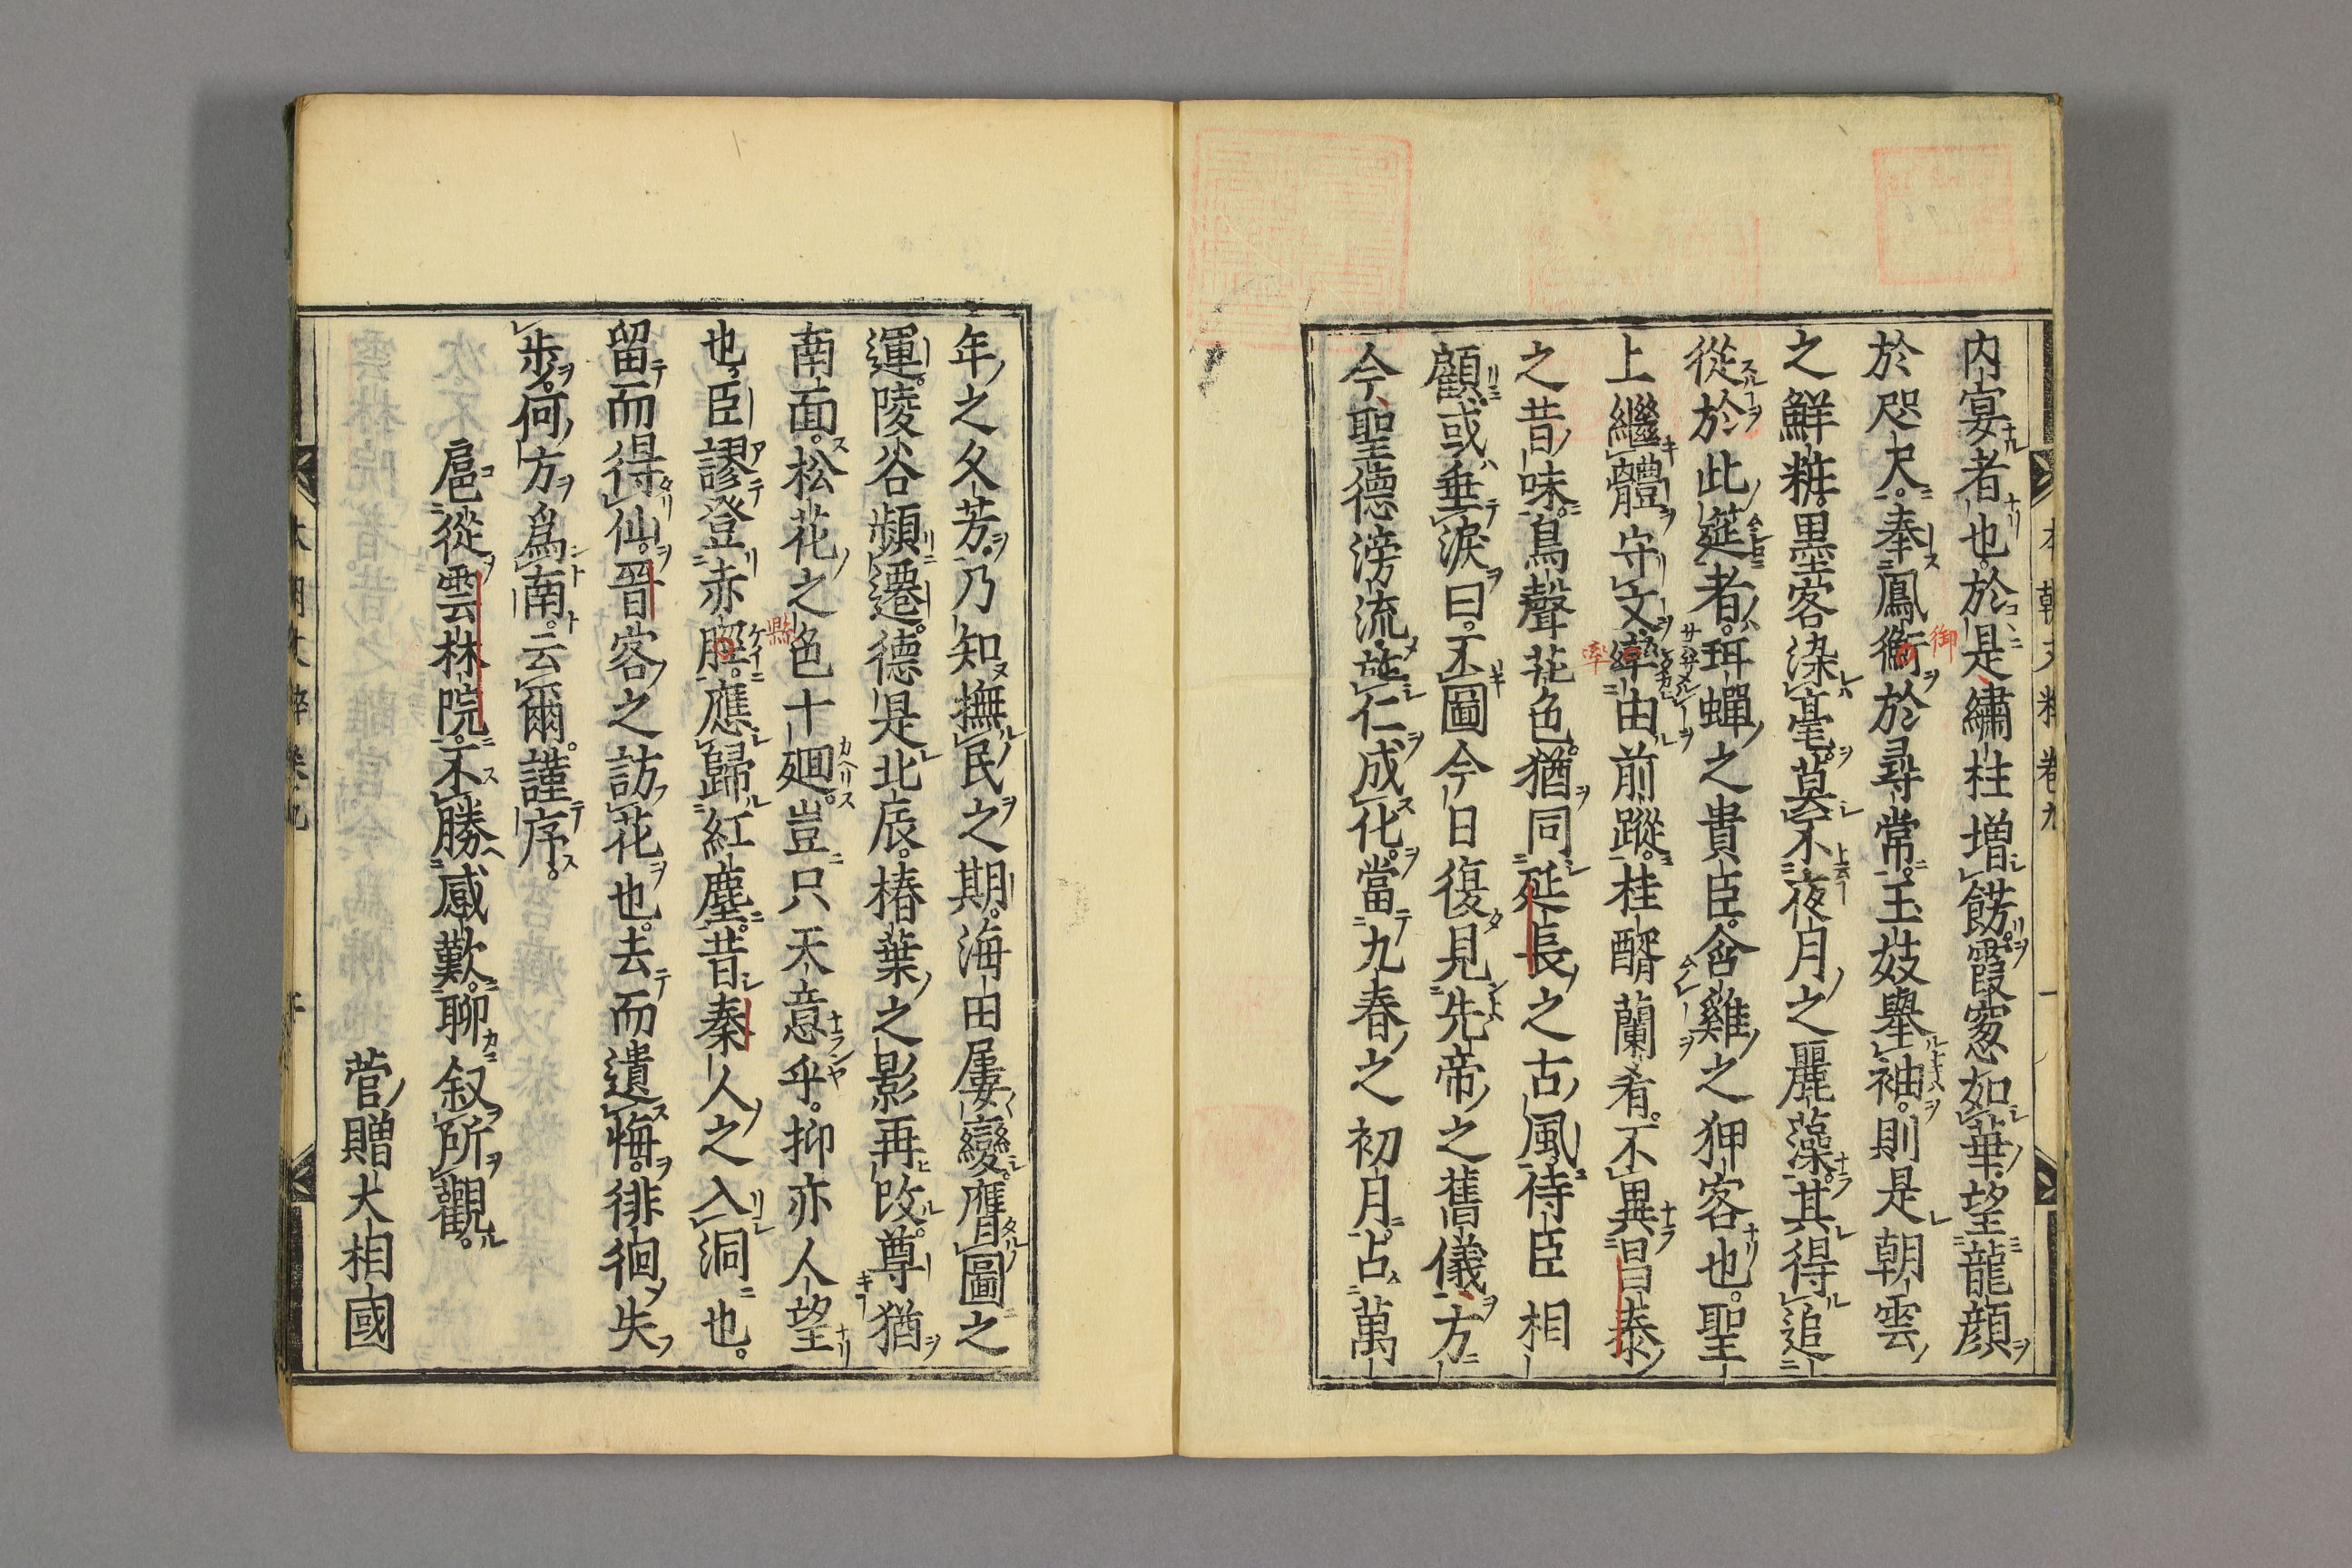 内宴者也。於是繡柱増餝。霞窓如華。望龍顔
於咫尺。奉鳳衡於尋常。玉妓舉袖。則是朝雲
之鮮粧。墨客染毫。莫不夜月之麗藻。其得追
從於此莚者。珥蝉之貴臣。含雞之狎客也。聖
上繼體守文。率由前蹤。桂醑蘭肴。不異昌泰
之昔味。鳥聲花色。猶同延長之古風。侍臣相
顧。或垂涙曰。不圖今日復見先帝之舊儀。方
今聖德滂流。施仁成化。當九春之初月。占萬
年之久芳。乃知撫民之期。海田屢變。膺圖之
運。陵谷頻遷。德是北辰。椿葉之影再改。尊猶
南面。松花之色十廻。豈只天意乎。抑亦人望
也。臣謬登赤縣。應歸紅塵。昔秦人之入洞也。
留而得仙。晉客之訪花也。去而遺悔。徘徊失
歩。何方爲南。云爾。謹序。
扈從雲林院。不勝感歎。聊叙所觀。
菅贈大相國
御
率
縣
本朝文粹卷九